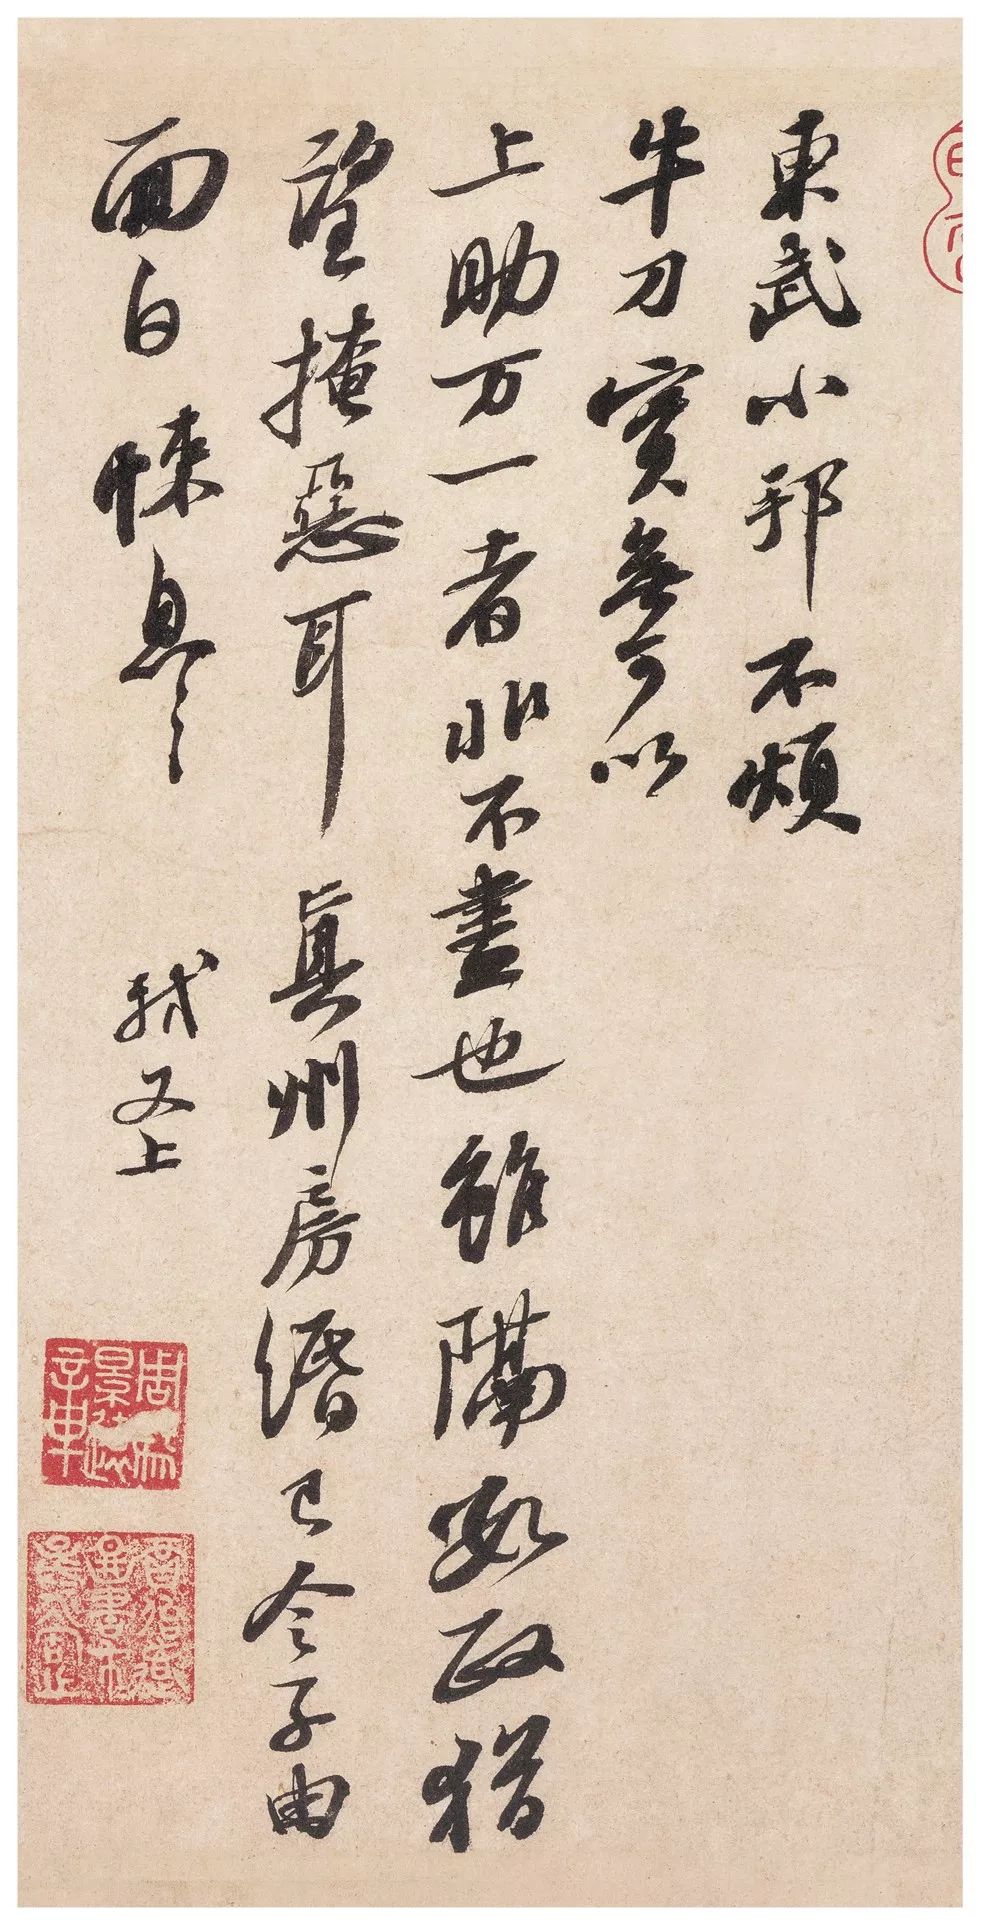 東武小邦不煩
牛刀實無可以
上助万一者非不盡也雖隔數政猶
望掩惡耳真州房緡已令子由
面白悚息〻〻軾又上